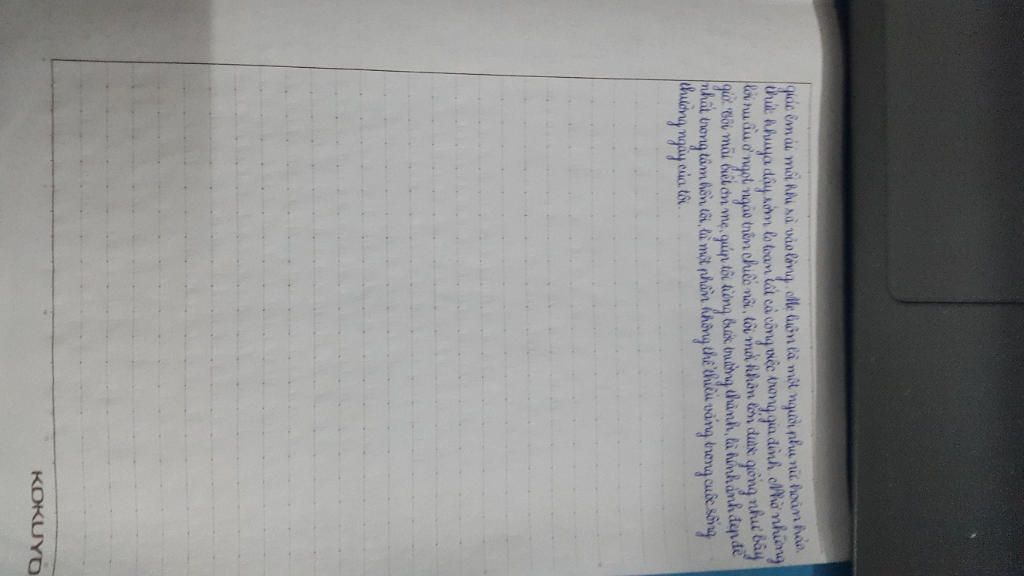 giác êm ái mỗi khi sà vào lòng. Mẹ luôn là một người phụ nữ hoàn hảo,
thức khuya dậy sớm lo toan tất cả công việc trong gia đình. Nhờ những
lời ru ầu ơ ngọt ngào trên chiếc nôi, tôi mới khôn lớn được giống như bây
giờ. Tôi mãi biết ơn mẹ, giúp tôi từng bước trưởng thành, là hình ảnh đẹp đẽ
nhất trong tâm hồn tôi, là một phần không thể thiếu vắng trong cuộc sống
thường ngày của tôi.
KOKUYO